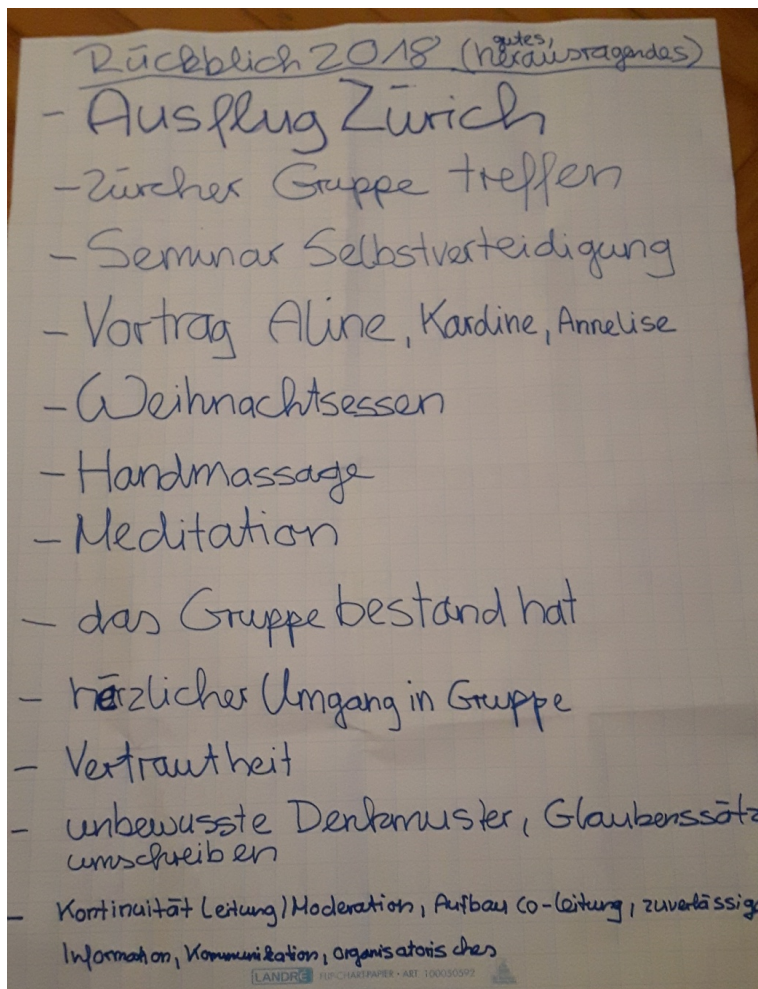 gutes,
Rückblich 2018 (herausragendes)
- Ausflug Zürich
- Zürcher Gruppe treffen
- Seminar Selbstverteidigung
- Vortrag Aline, Karoline, Annelise
- Weihnachtsessen
- Handmassage
- Meditation
- das Gruppe bestand hat
- herzlicher Umgang in Gruppe
- Vertrautheit
- unbewusste Denkmuster, Glaubenssätz
umschreiben
- Kontinuität Leitung/Moderation, Aufbau Co-Leitung, zuverlässig
Information, Kommunikation, organisatorisches
LANDRÉ FLIPCHARTPAPIER • ART. 100050592